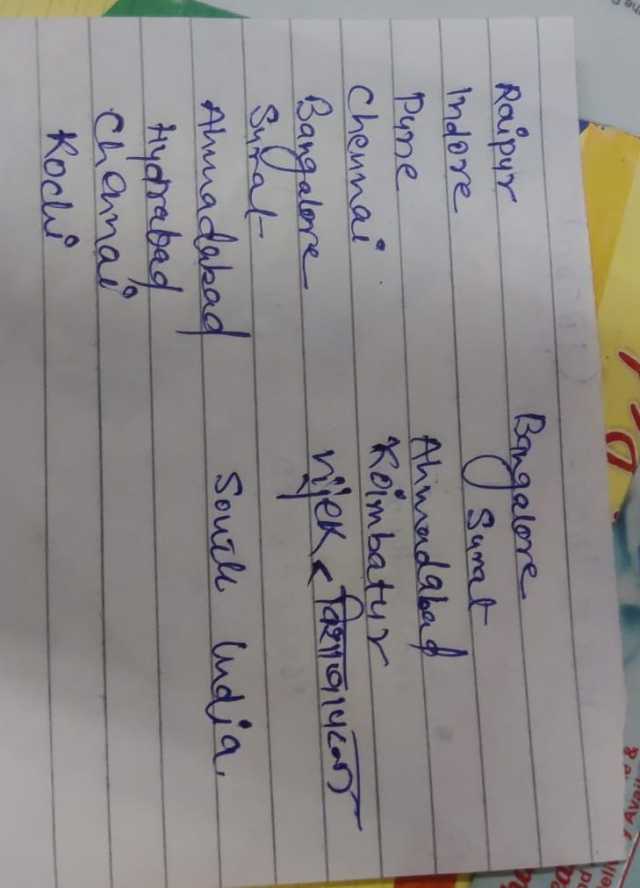 Raipur
Indore
Pune
Chennai
Bangalore
Surat
Ahmadabad
Hydrabad
Chennai
Kochi
Bangalore
Surat
Ahmadabad
Koimbatur
South India